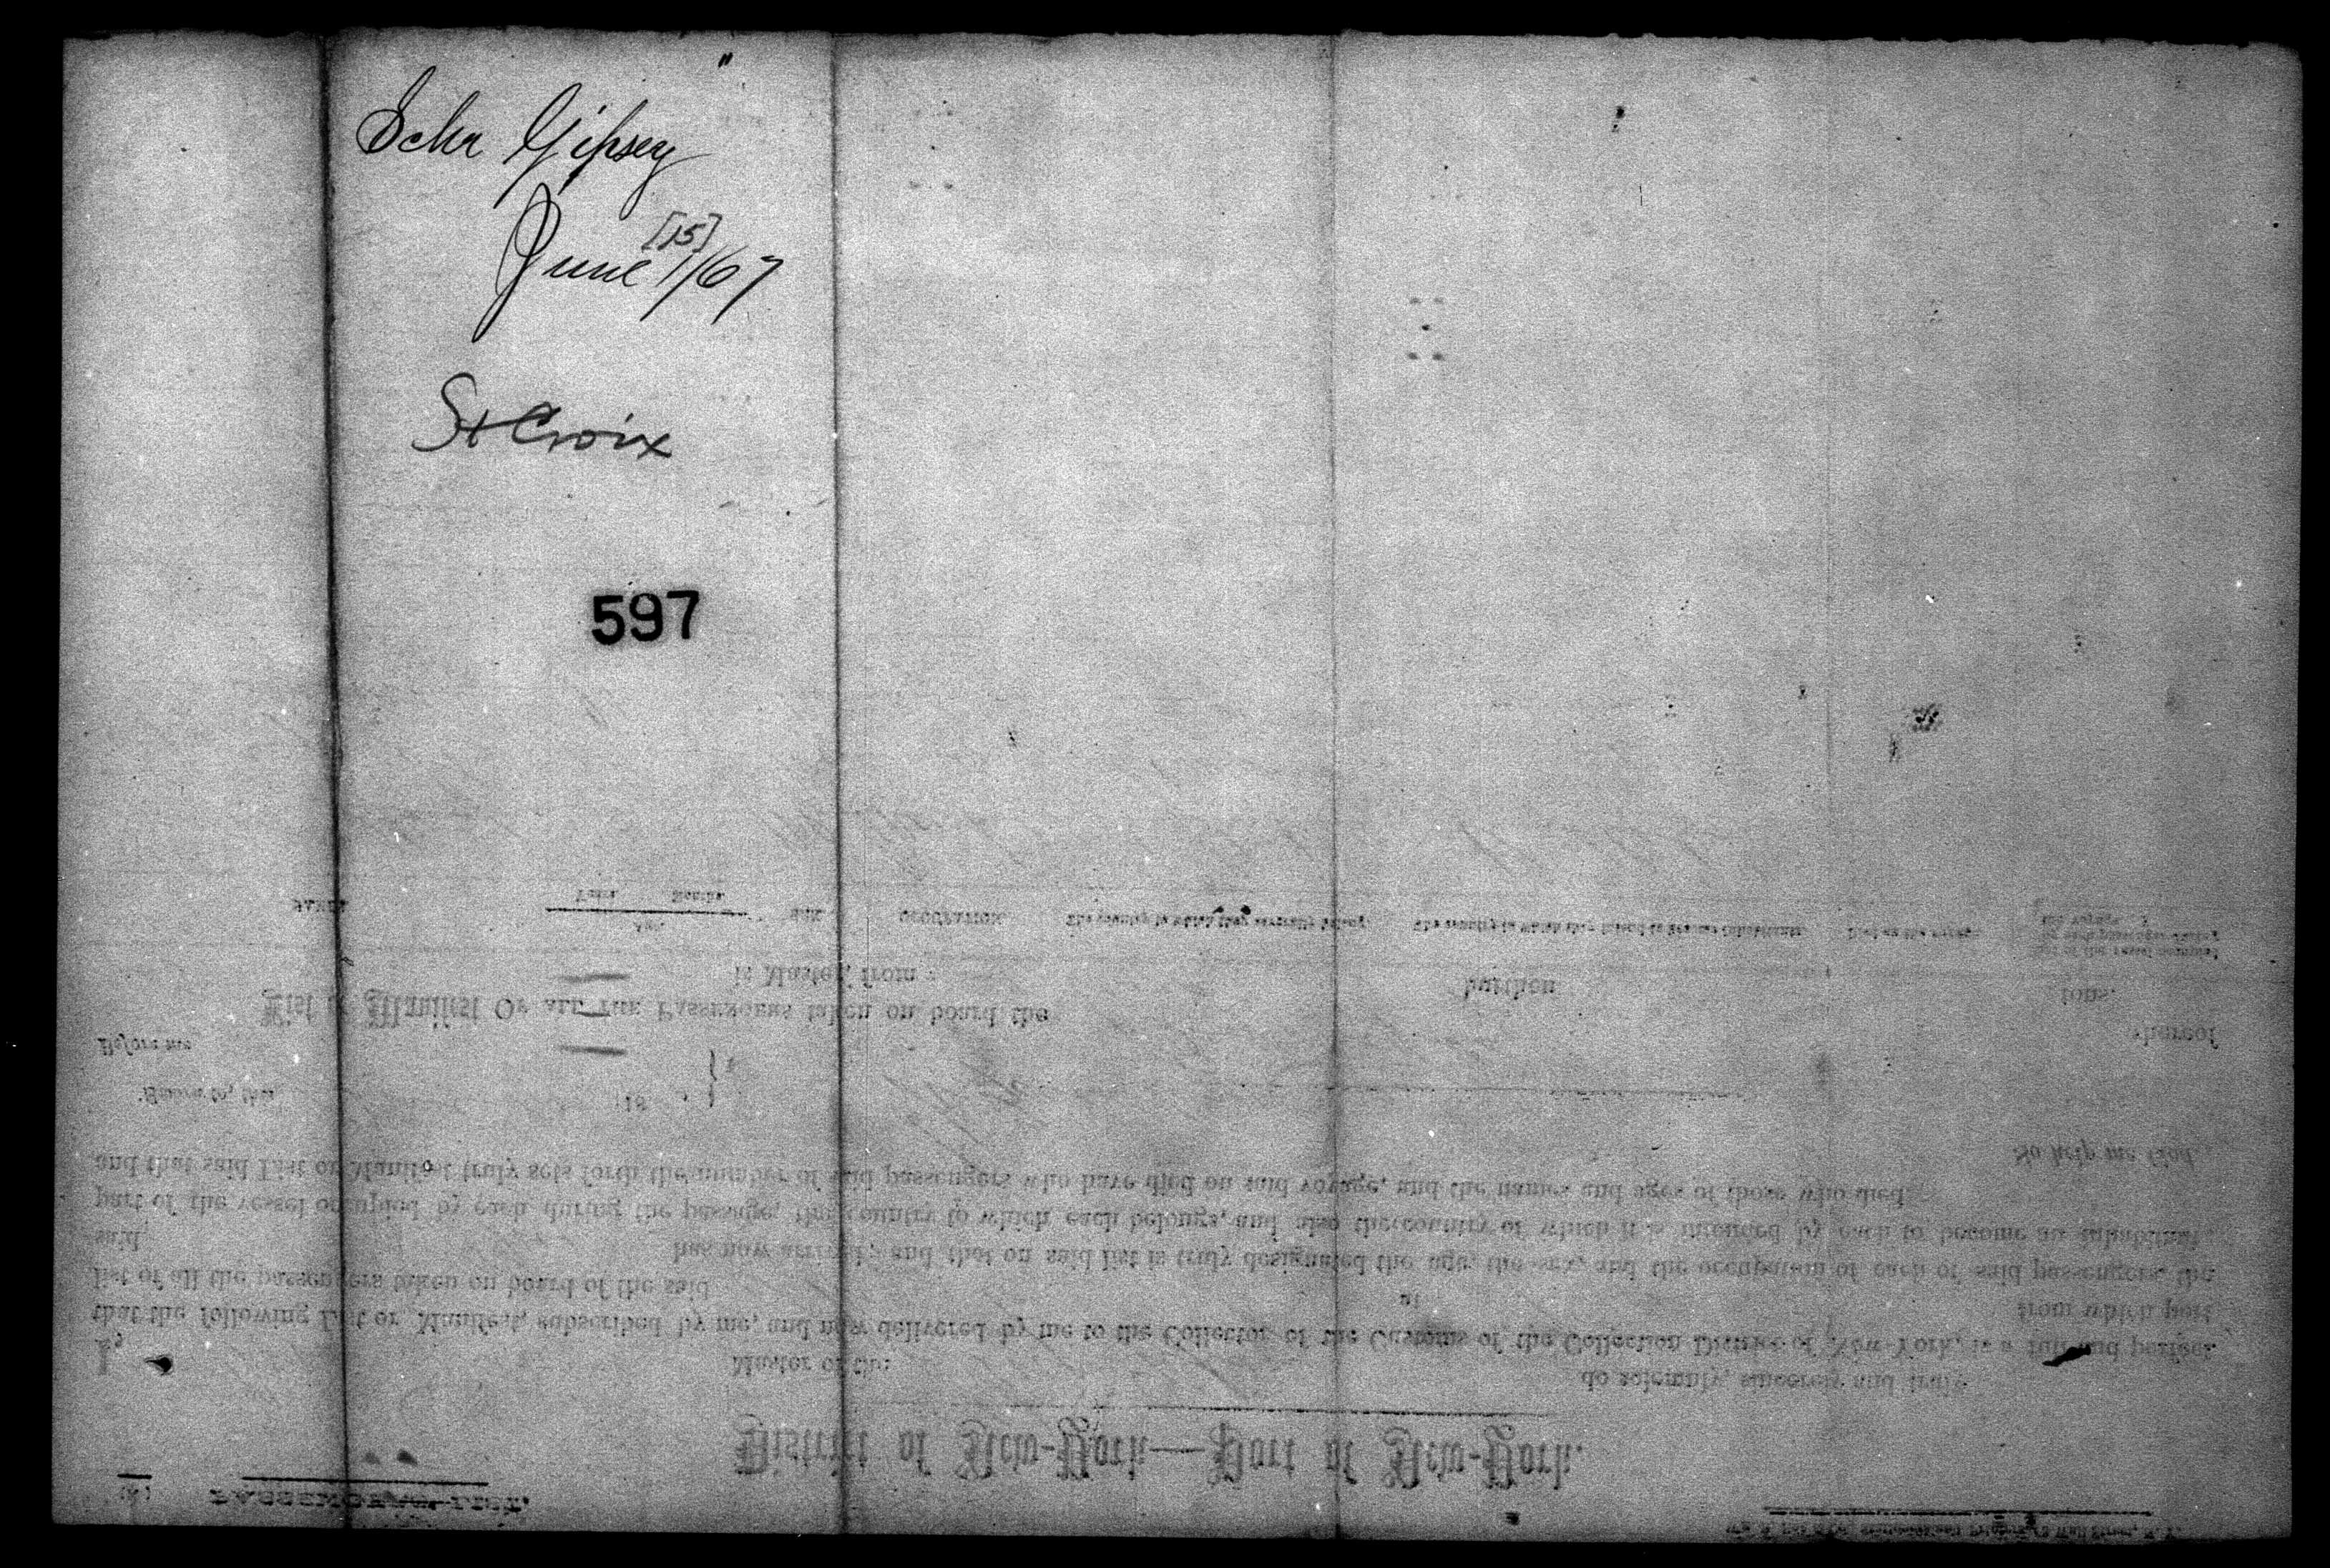 Schr Gipsey
[15]
June 1/67
St Croix
597
NAMES
Years Months
Age
SEX
OCCUPATION
The country to which they severally belong
The country in which they intend to become inhabitants
Died on the voyage
is Master, from
burthen
tons.
List or Manifest OF ALL THE PASSENGERS taken on board the
thereof
Before me
Sworn to, this
18
So help me God.
and that said List or Manifest truly sets forth the number of said passengers who have died on said voyage, and the names and ages of those who died.
part of the vessel occupied by each during the passage, the country to which each belongs, and also the country of which it is intended by each to become an inhabitant
said,
has now arrived; and that on said list is truly designated the age, the sex, and the occupation of each of said passengers, the
list of all the passengers taken on board of the said
at
from which port
that the following List or Manifest, subscribed by me, and now delivered by me to the Collector of the Customs of the Collection District of New York, is a full and perfect
I,
Master of the
do solemnly, sincerely and truly
District of New-York—Port of New-York.
PASSENGERS LIST.